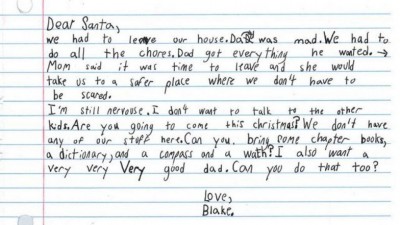 Dear Santa,
we had to leave our house. Dad was mad. We had to
do all the chores. Dad got everything he wanted. →
Mom said it was time to leave and she would
take us to a safer place where we don't have to
be scared.
I'm still nervouse. I don't want to talk to the other
kids. Are you going to come this christmas? We don't have
any of our stuff here. Can you bring some chapter books,
a dictionary, and a compass and a wath? I also want a
very very very good dad. Can you do that too?
Love,
Blake.